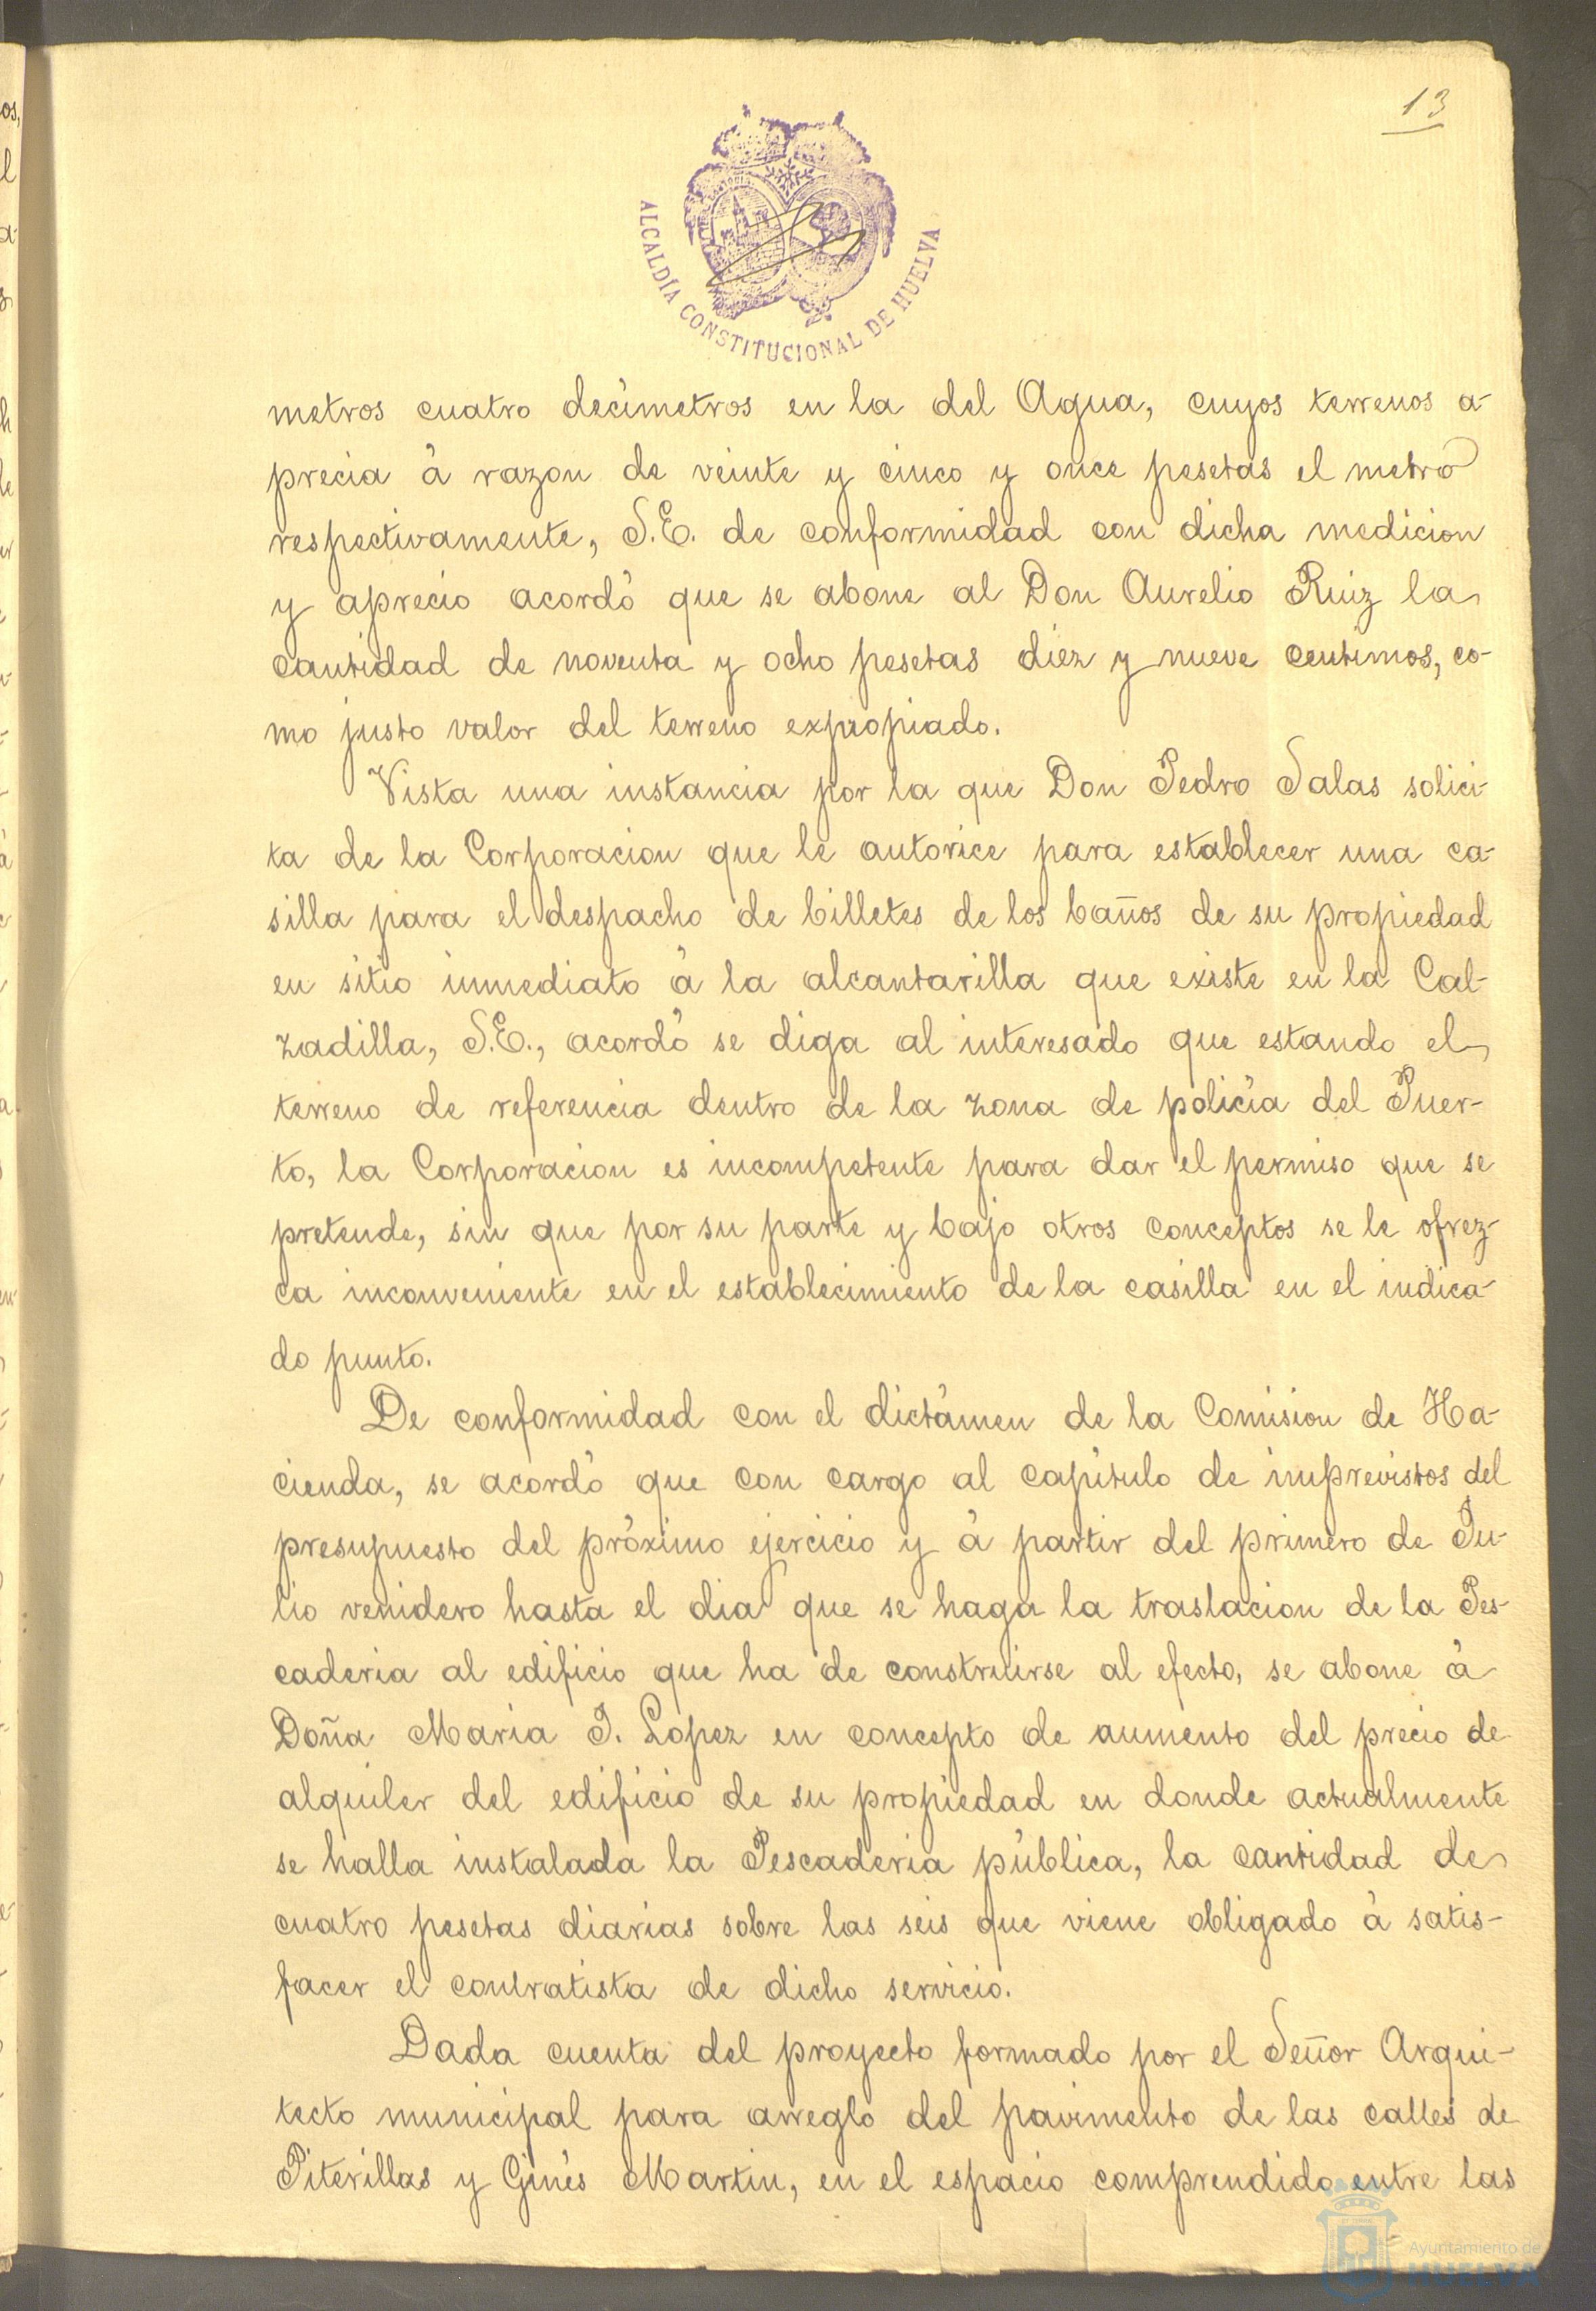 13
ALCALDÍA CONSTITUCIONAL DE HUELVA
metros cuatro decímetros en la del Agua, cuyos terrenos a-
precia á razon de veinte y cinco y once pesetas el metro
respectivamente, S.E. de conformidad con dicha medicion
y aprecio acordó que se abone al Don Aurelio Ruiz la
cantidad de noventa y ocho pesetas diez y nueve centimos, co-
mo justo valor del terreno expropiado.
Vista una instancia por la que Don Pedro Salas solici-
ta de la Corporacion que le autorice para establecer una ca-
silla para el despacho de billetes de los baños de su propiedad
en sitio inmediato á la alcantarilla que existe en la Cal-
zadilla, S.E., acordó se diga al interesado que estando el
terreno de referencia dentro de la zona de policía del Puer-
to, la Corporacion es incompetente para dar el permiso que se
pretende, sin que por su parte y bajo otros conceptos se le ofrez-
ca inconveniente en el establecimiento de la casilla en el indica-
do punto.
De conformidad con el dictámen de la Comision de Ha-
cienda, se acordó que con cargo al capítulo de imprevistos del
presupuesto del próximo ejercicio y á partir del primero de Ju-
lio venidero hasta el dia que se haga la traslacion de la Pes-
caderia al edificio que ha de construirse al efecto, se abone á
Doña Maria J. Lopez en concepto de aumento del precio de
alquiler del edificio de su propiedad en donde actualmente
se halla instalada la Pescaderia pública, la cantidad de
cuatro pesetas diarias sobre las seis que viene obligado á satis-
facer el contratista de dicho servicio.
Dada cuenta del proyecto formado por el Señor Arqui-
tecto municipal para arreglo del pavimento de las calles de
Piterillas y Ginés Martin, en el espacio comprendido entre las
Ayuntamiento de
HUELVA